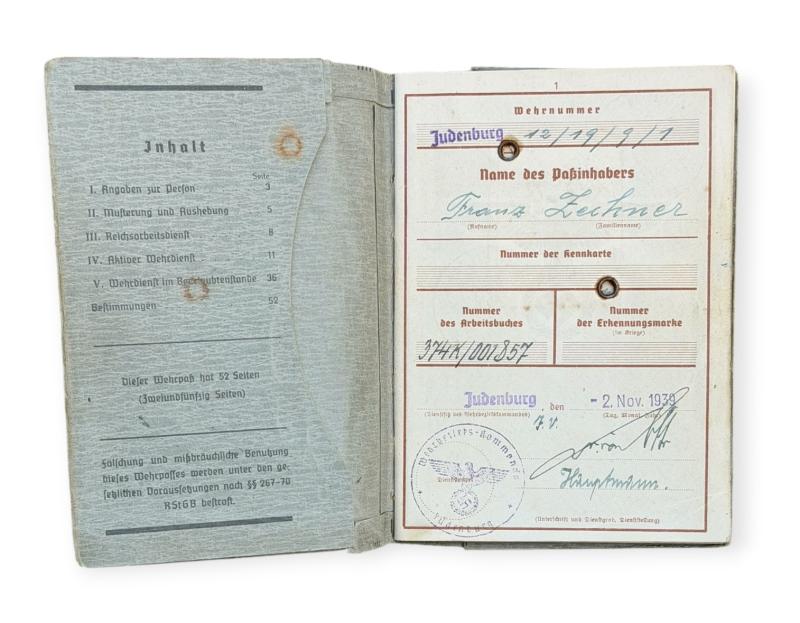 Inhalt
Seite
I. Angaben zur Person 3
II. Musterung und Aushebung 5
III. Reichsarbeitsdienst 8
IV. Aktiver Wehrdienst 11
V. Wehrdienst im Beurlaubtenstande 36
Bestimmungen 52
Dieser Wehrpaß hat 52 Seiten
(Zweiundfünfzig Seiten)
Fälschung und mißbräuchliche Benutzung
dieses Wehrpasses werden unter den ge-
setzlichen Voraussetzungen nach §§ 267-70
RStGB bestraft.
1
Wehrnummer
Judenburg 12/19/9/1
Name des Paßinhabers
Franz Zechner
(Rufname) (Familienname)
Nummer der Kennkarte
Nummer
des Arbeitsbuches
374K/001857
Nummer
der Erkennungsmarke
(im Kriege)
Judenburg, den - 2. Nov. 1939
(Dienstsitz des Wehrbezirkskommandos) (Tag, Monat, Jahr)
J.V.
Hauptmann.
Dienststempel
Wehrbezirks-Kommando
Judenburg
(Unterschrift und Dienstgrad, Dienststellung)